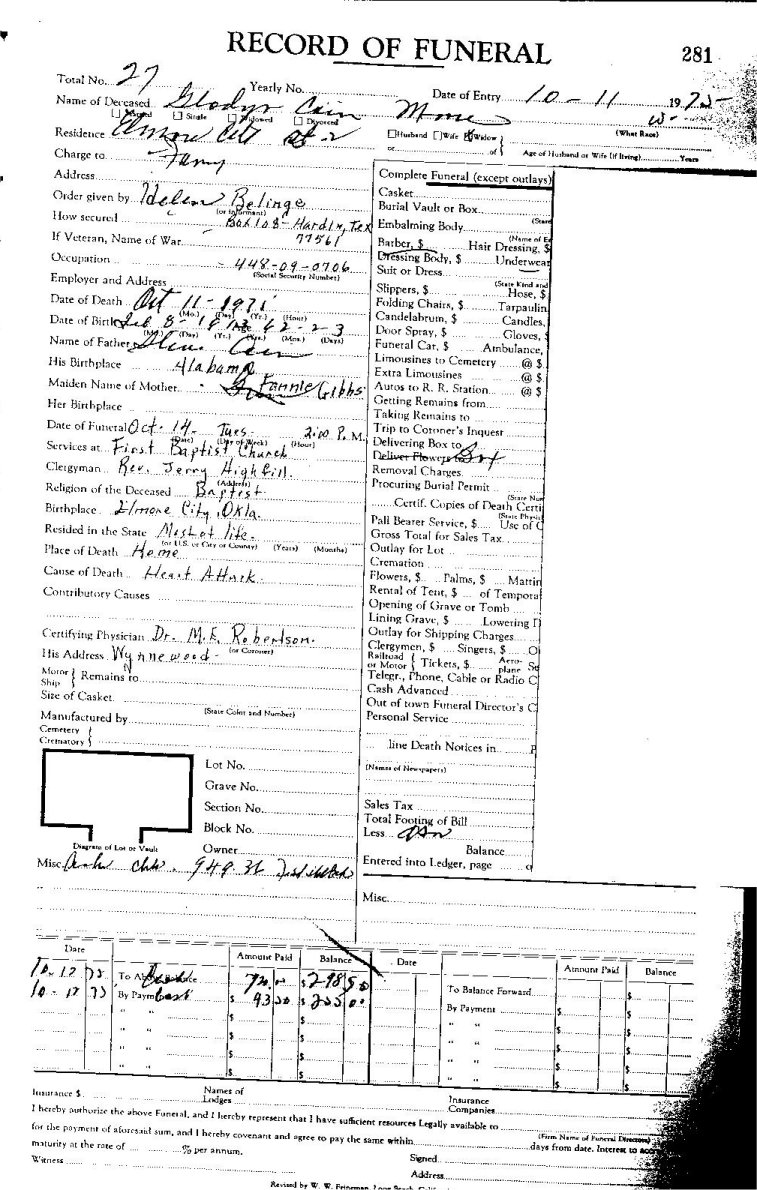 RECORD OF FUNERAL 281
Total No. 27 Yearly No. Date of Entry 10 - 11 19 75
Name of Deceased Gladys Cain
Married Single Widowed Divorced
Husband Wife Widow (What Race)
Residence Elmore City Rt-2
or of Age of Husband or Wife (if living) Years
Charge to Family
Address
Order given by Helen Belinge
(or Informant)
How secured Box 108 - Hardin, Tex
If Veteran, Name of War 77561
Occupation - 448-09-0706
(Social Security Number)
Employer and Address
Date of Death Oct 11 - 1975
(Mo.) (Day) (Yr.) (Hour)
Date of Birth 8 - Age 62 - 2 - 3
(Mo.) (Day) (Yr.) (Yrs.) (Mos.) (Days)
Name of Father Cain
His Birthplace Alabama
Maiden Name of Mother Fannie Gibbs
Her Birthplace
Date of Funeral Oct. 14 - Tues. 2:00 P.M.
(Date) (Day of Week) (Hour)
Services at First Baptist Church
Clergyman Rev. Jerry Highfill.
(Address)
Religion of the Deceased Baptist
Birthplace Elmore City, Okla.
Resided in the State Most of life.
(or U.S. or City or County) (Years) (Months)
Place of Death Home
Cause of Death Heart Attack.
Contributory Causes
Certifying Physician Dr. M.E. Robertson.
(or Coroner)
His Address Wynnewood -
Motor Ship } Remains to
Size of Casket
(State Color and Number)
Manufactured by
Cemetery
Crematory
Lot No.
Grave No.
Section No.
Block No.
Diagram of Lot or Vault Owner
Misc. 949.36
Complete Funeral (except outlays)
Casket
Burial Vault or Box
(State
Embalming Body
(Name of E
Barber, $ Hair Dressing, $
Dressing Body, $ Underwear
Suit or Dress
(State Kind and
Slippers, $ Hose, $
Folding Chairs, $ Tarpaulin
Candelabrum, $ Candles,
Door Spray, $ Gloves, $
Funeral Car, $ Ambulance,
Limousines to Cemetery @ $
Extra Limousines @ $
Autos to R. R. Station @ $
Getting Remains from
Taking Remains to
Trip to Coroner's Inquest
Delivering Box to
Deliver Flowers to
Removal Charges
Procuring Burial Permit
(State Num
Certif. Copies of Death Certi
(State Physic
Pall Bearer Service, $ Use of C
Gross Total for Sales Tax
Outlay for Lot
Cremation
Flowers, $ Palms, $ Mattin
Rental of Tent, $ of Temporal
Opening of Grave or Tomb
Lining Grave, $ Lowering D
Outlay for Shipping Charges
Clergymen, $ Singers, $ O
Railroad or Motor } Tickets, $ Aeroplane Se
Telegr., Phone, Cable or Radio C
Cash Advanced
Out of town Funeral Director's C
Personal Service
line Death Notices in P
(Names of Newspapers)
Sales Tax
Total Footing of Bill
Less
Balance
Entered into Ledger, page
Misc.
Date Amount Paid Balance Date Amount Paid Balance
10 - 12 75 To Above Balance $
To Balance Forward $
10 - 17 75 By Payment $ $
By Payment $ $
" " $ $
" " $ $
" " $ $
" " $ $
Insurance $ Names of Lodges Insurance Companies
I hereby authorize the above Funeral, and I hereby represent that I have sufficient resources Legally available to
(Firm Name of Funeral Directors)
for the payment of aforesaid sum, and I hereby covenant and agree to pay the same within days from date. Interest to acc
maturity at the rate of % per annum.
Signed
Witness
Address
Revised by W. W. Frineman, Long Beach, Calif